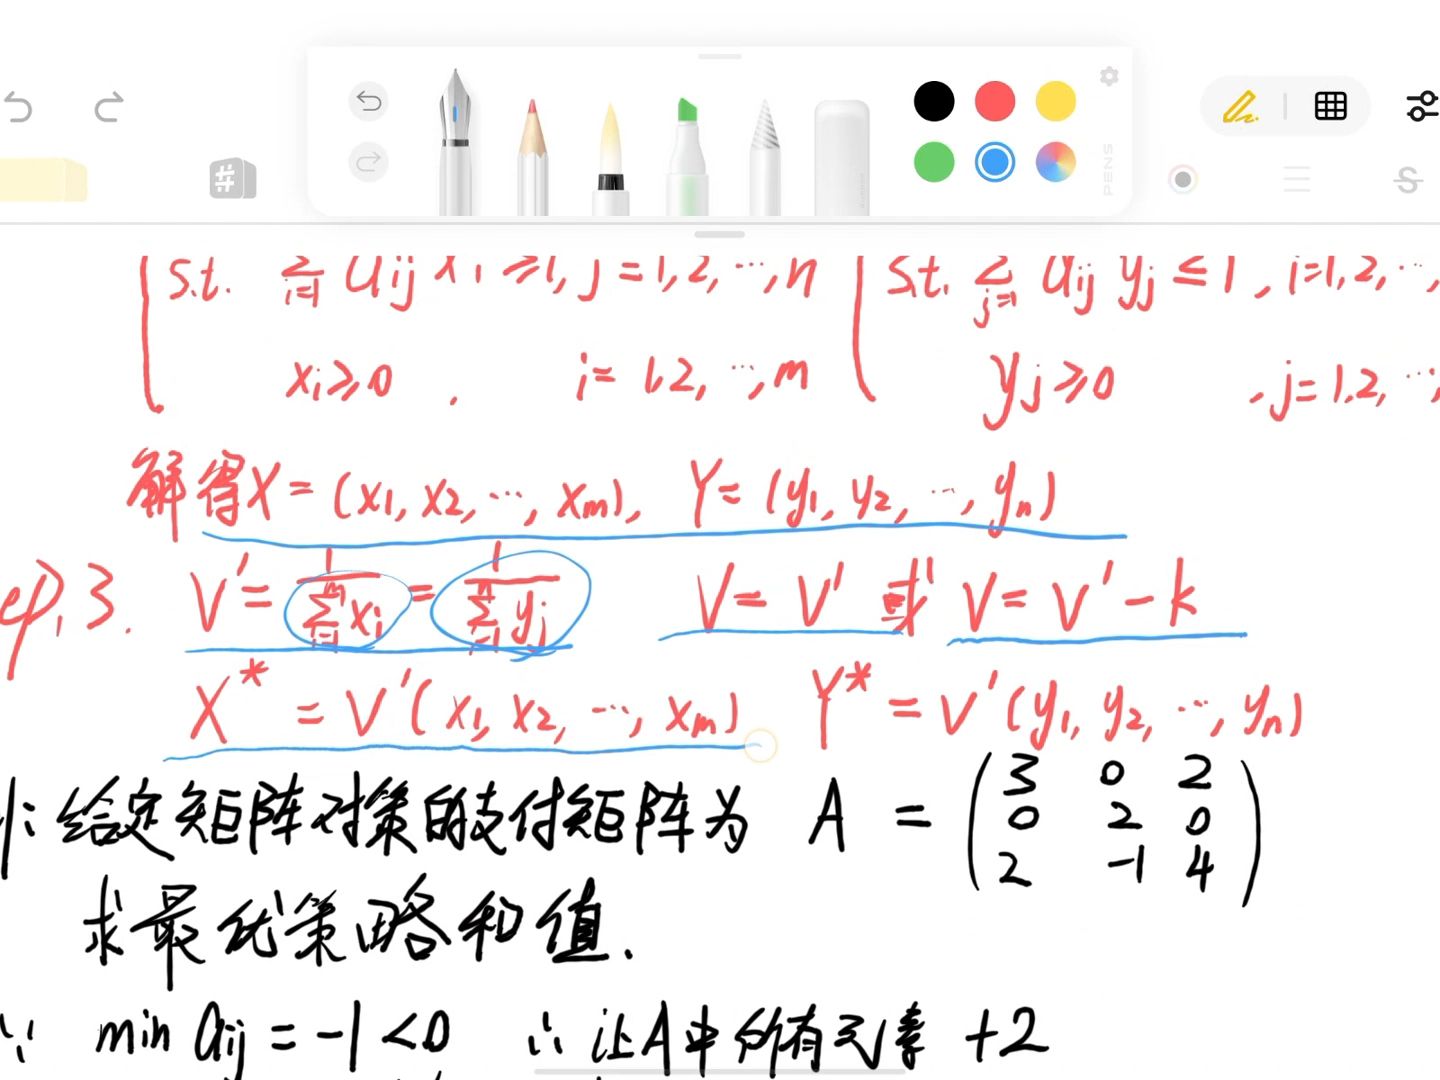 s.t. Σ_{i=1} a_{ij} x_i ≥ 1, j = 1, 2, …, n s.t. Σ_{j=1} a_{ij} y_j ≤ 1, i = 1, 2, …,
x_i ≥ 0, i = 1, 2, …, m y_j ≥ 0, j = 1, 2, …,
解得X = (x_1, x_2, …, x_m), Y = (y_1, y_2, …, y_n)
ep, 3. V' = 1/Σ_{i=1}^{m} x_i = 1/Σ_{j=1}^{n} y_j V = V' 或 V = V' - k
X* = V'(x_1, x_2, …, x_m) Y* = V'(y_1, y_2, …, y_n)
: 给定矩阵对策的支付矩阵为 A = (3 0 2
0 2 0
2 -1 4)
求最优策略和值.
∵ min a_{ij} = -1 < 0 ∴ 让A中所有元素 +2
PENS